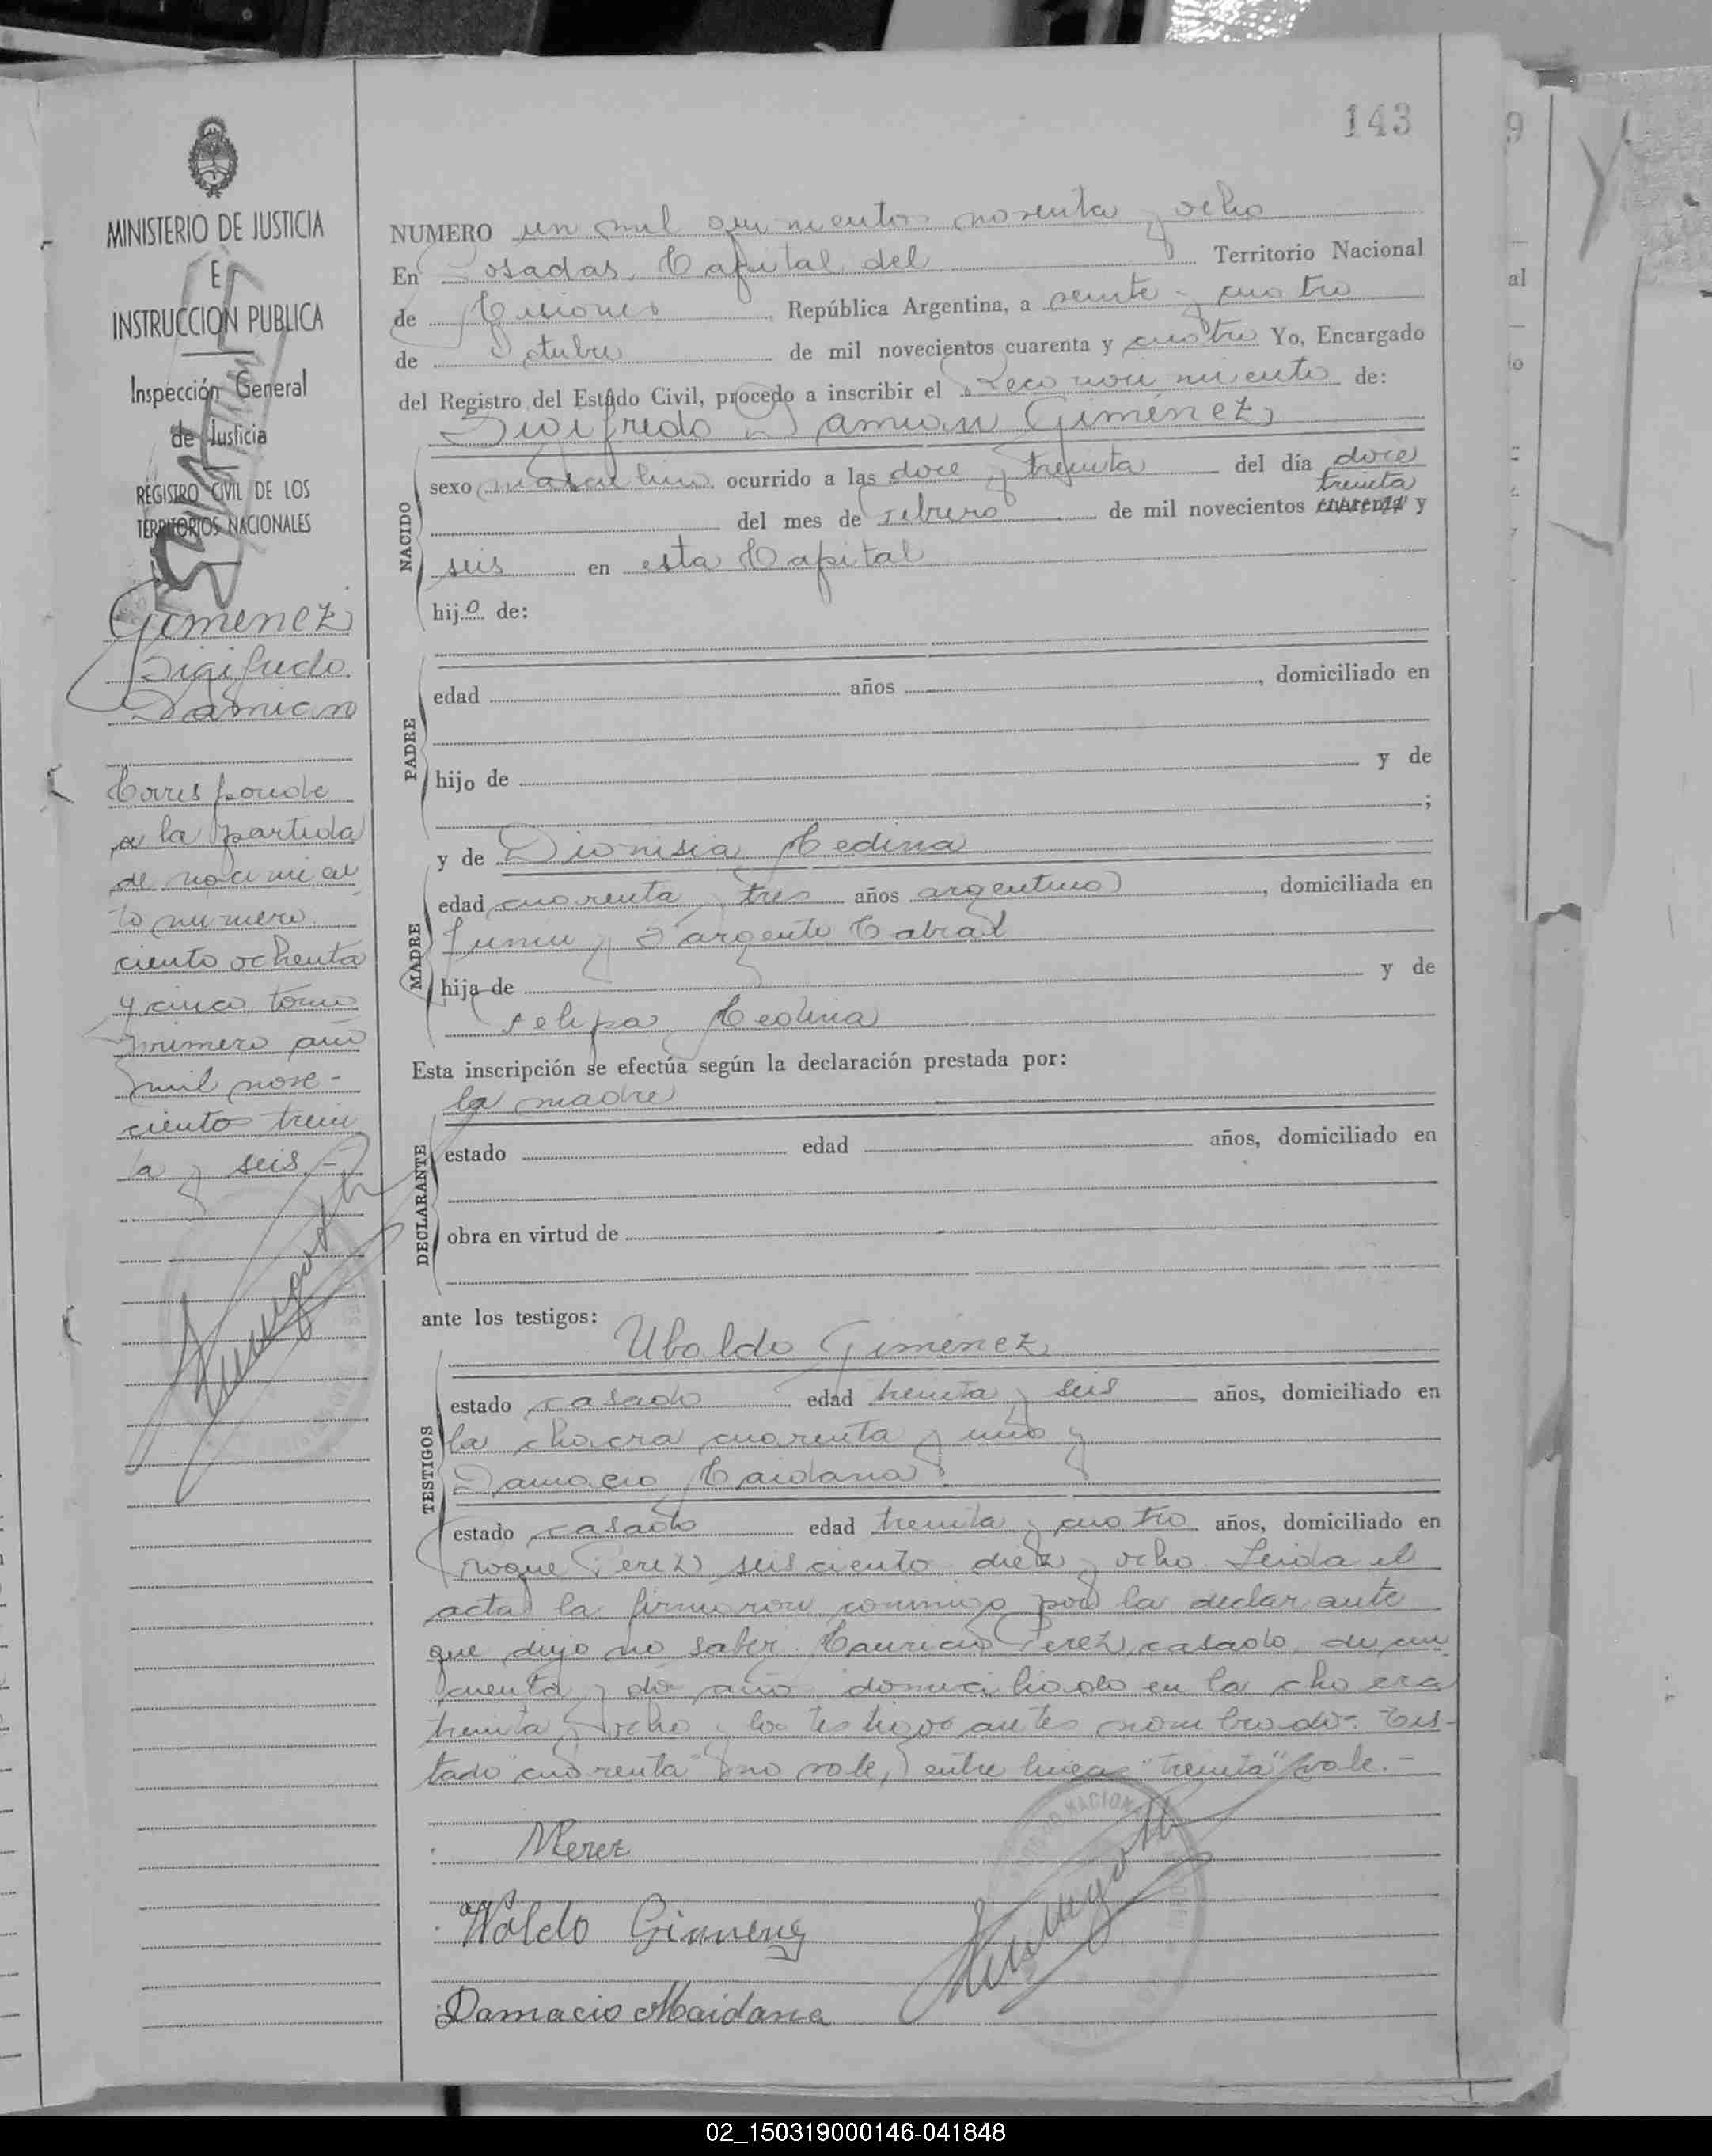 143
9
MINISTERIO DE JUSTICIA
E
INSTRUCCION PUBLICA
Inspección General
de Justicia
REGISTRO CIVIL DE LOS
TERRITORIOS NACIONALES
Gimenez
Sigifredo
Damian
Corresponde
a la partida
de nacimien
to numero
ciento ochenta
y cinco tomo
primero año
mil nove-
cientos trein
ta y seis.-
NUMERO un mil quinientos noventa y ocho
En Posadas, Capital del Territorio Nacional
de Misiones, República Argentina, a veinte y cuatro
de Octubre de mil novecientos cuarenta y cuatro Yo, Encargado
del Registro del Estado Civil, procedo a inscribir el Reconocimiento de:
Sigifredo Damian Gimenez
NACIDO
sexo masculino ocurrido a las doce y treinta del día doce
treinta
del mes de febrero de mil novecientos cuarenta y
seis en esta Capital
hijo de:
PADRE
edad años , domiciliado en
hijo de y de
;
MADRE
y de Dionisia Medina
edad cuarenta y tres años argentina , domiciliada en
Junin y Sargento Cabral
hija de y de
Felipa Medina
Esta inscripción se efectúa según la declaración prestada por:
la madre
DECLARANTE
estado edad años, domiciliado en
obra en virtud de
ante los testigos:
Ubaldo Gimenez
TESTIGOS
estado casado edad treinta y seis años, domiciliado en
la chacra cuarenta y uno y
Damacio Maidana
estado casado edad treinta y cuatro años, domiciliado en
Roque Perez seisciento diez y ocho. Leida el
acta la firmaron conmigo por la declarante
que dijo no saber Mauricio Perez, casado, de cin
cuenta y dos años domiciliado en la chacra
treinta y ocho y los testigos antes nombrados. Tes-
tado "cuarenta" no vale, entre lineas "treinta" vale.-
MPerez
Waldo Gimenez
Damacio Maidana
02_150319000146-041848